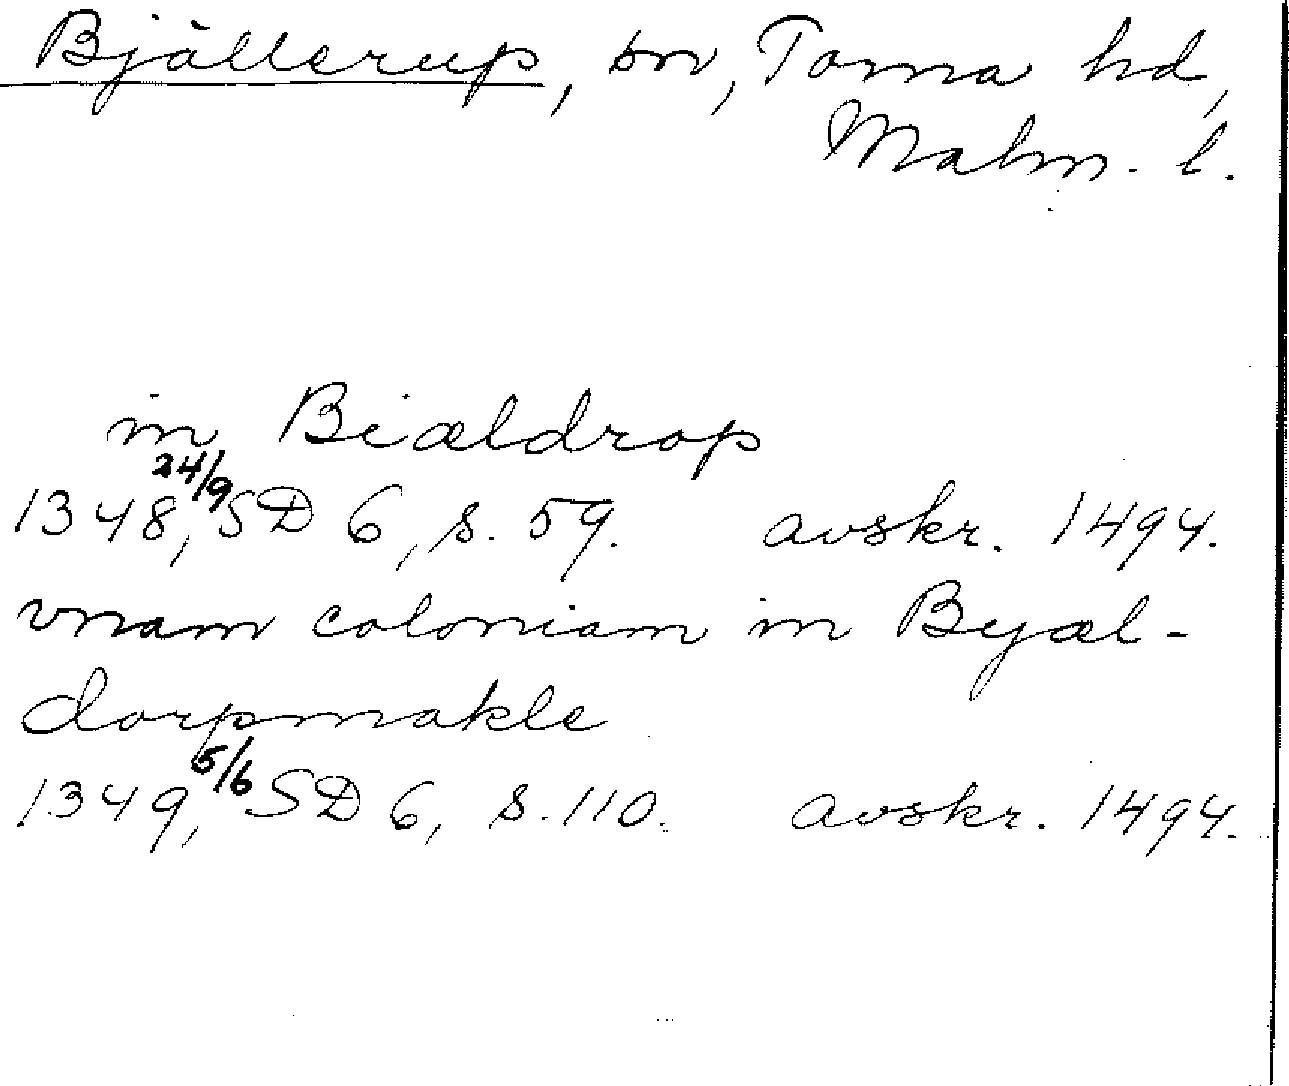 Bjällerup, sn, Torna hd,
Malm. l.
in Biældrop
24/9
1348, SD 6, s. 59. avskr. 1494.
vnam coloniam in Byæl-
dorpmakle
5/6
1349, SD 6, s. 110. avskr. 1494.